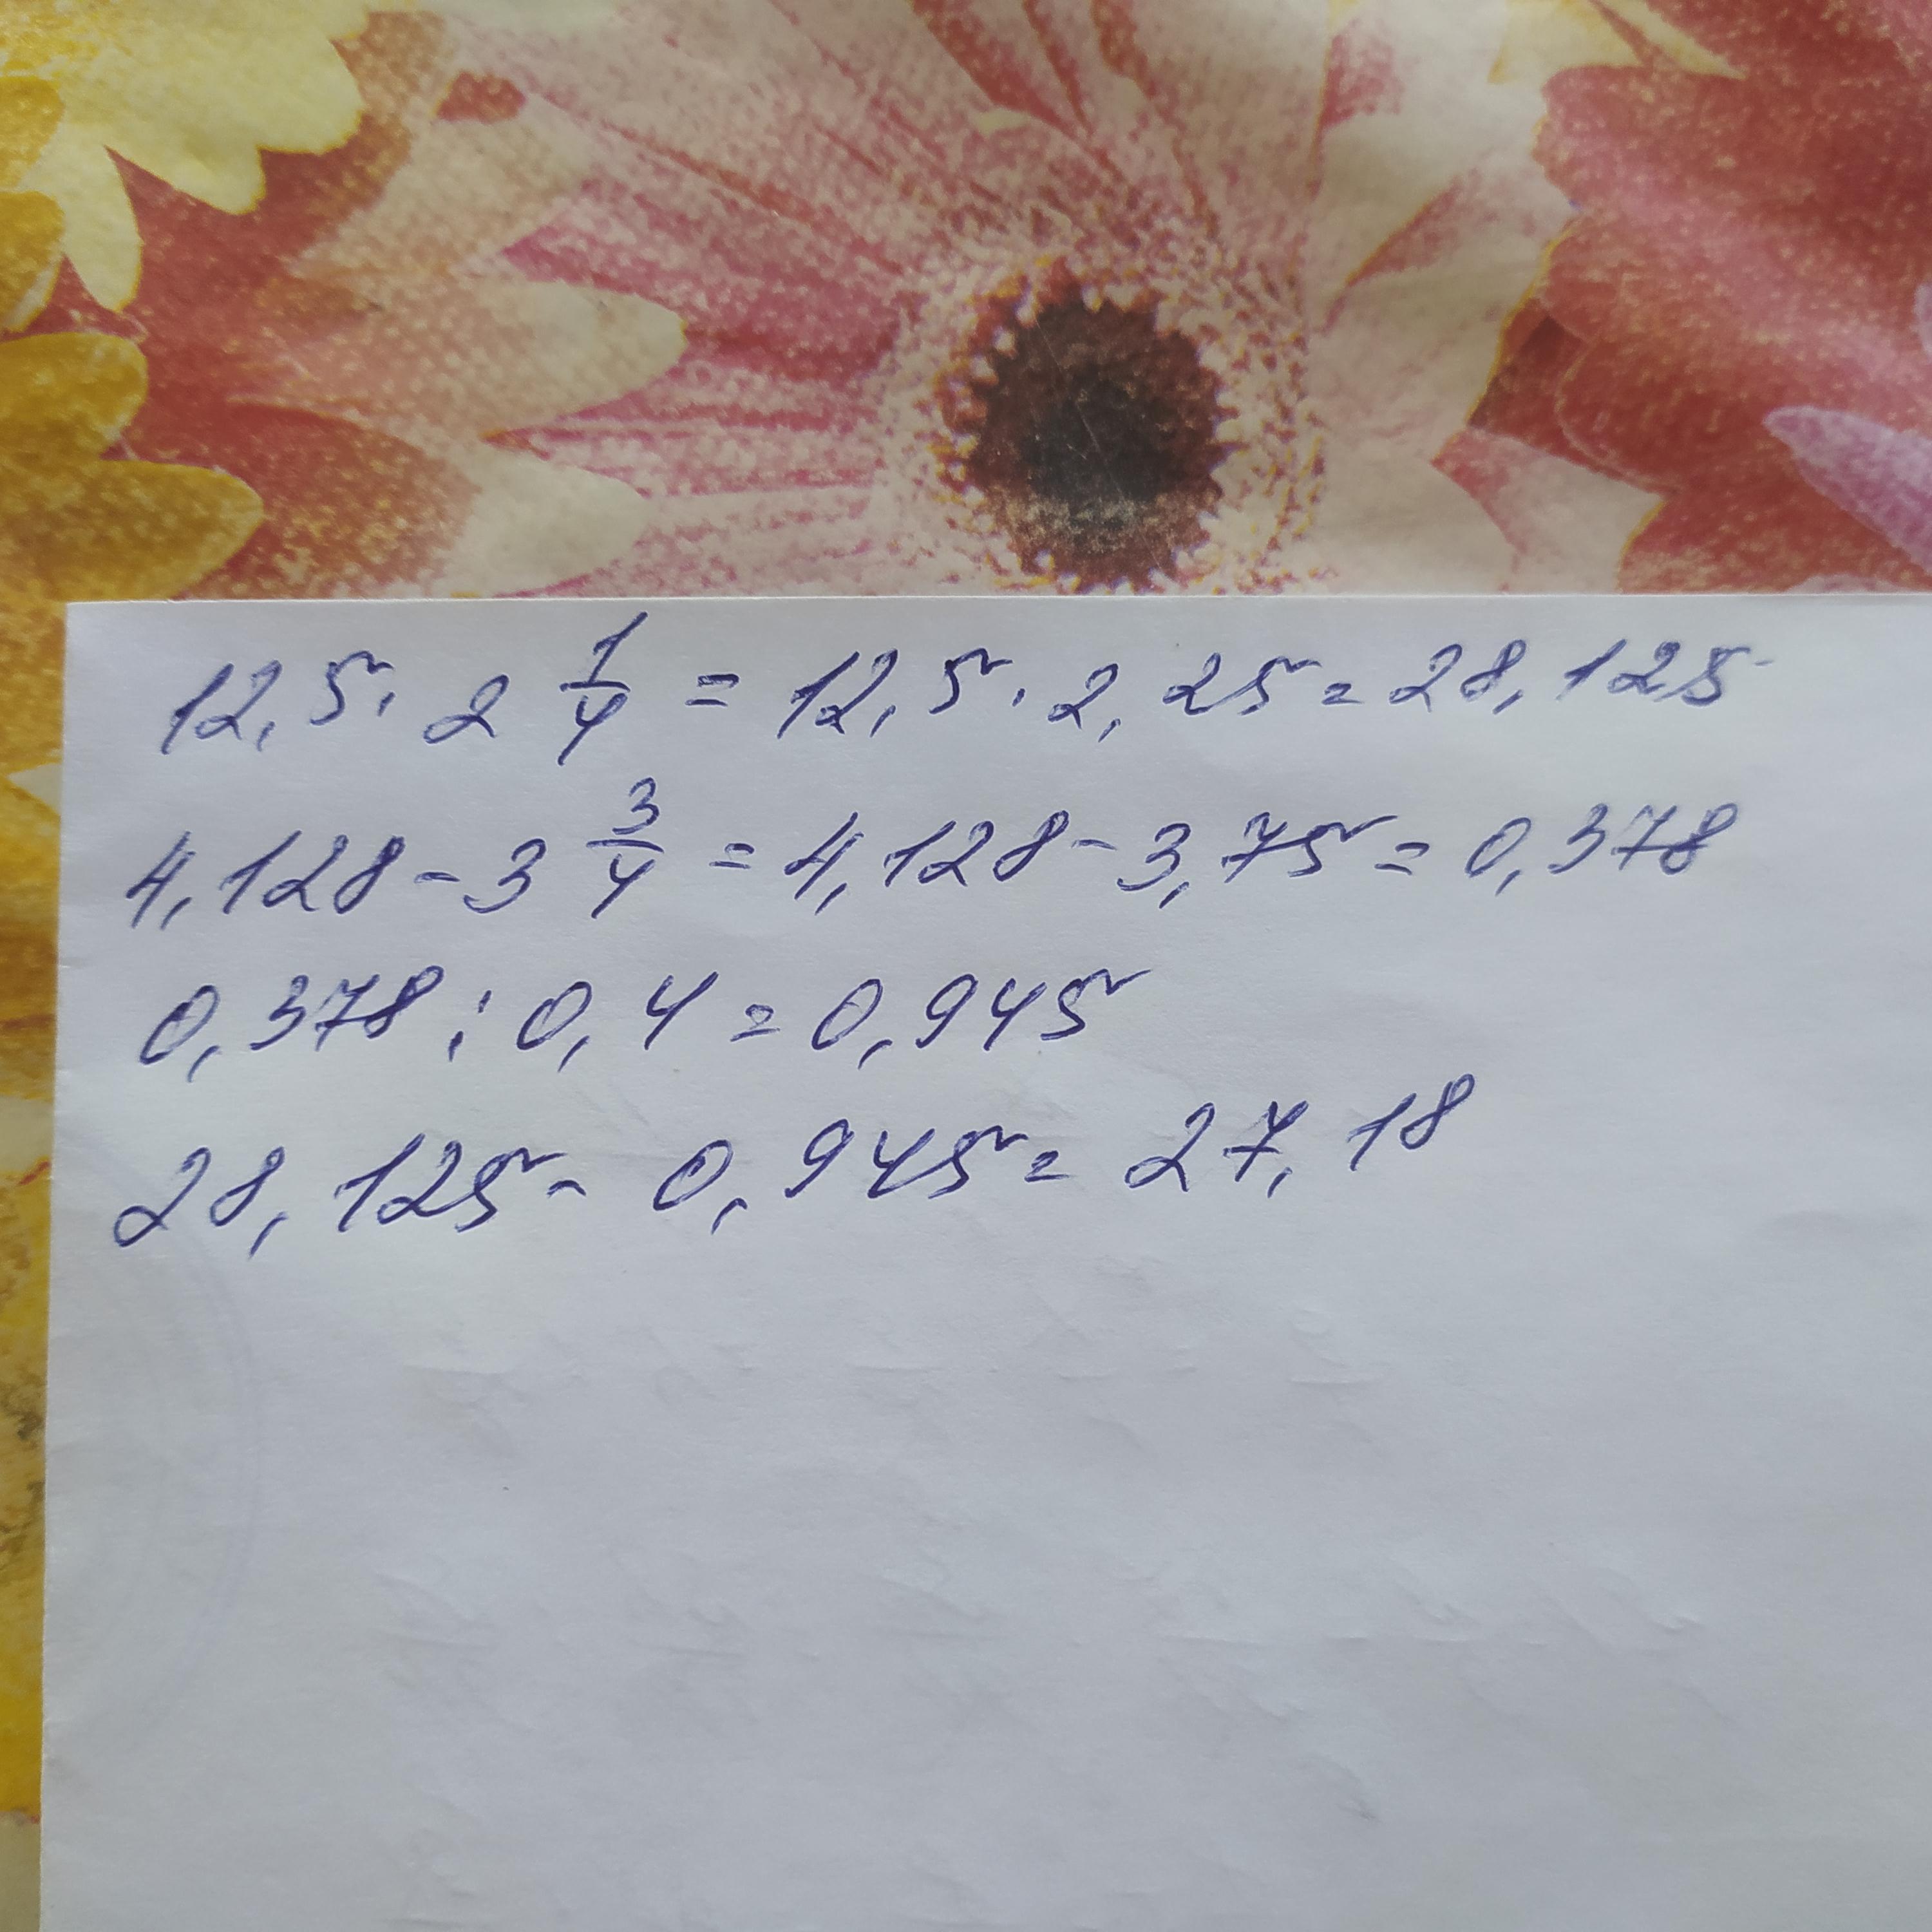 12,5 · 2 1/4 = 12,5 · 2,25 = 28,125
4,128 - 3 3/4 = 4,128 - 3,75 = 0,378
0,378 : 0,4 = 0,945
28,125 - 0,945 = 27,18